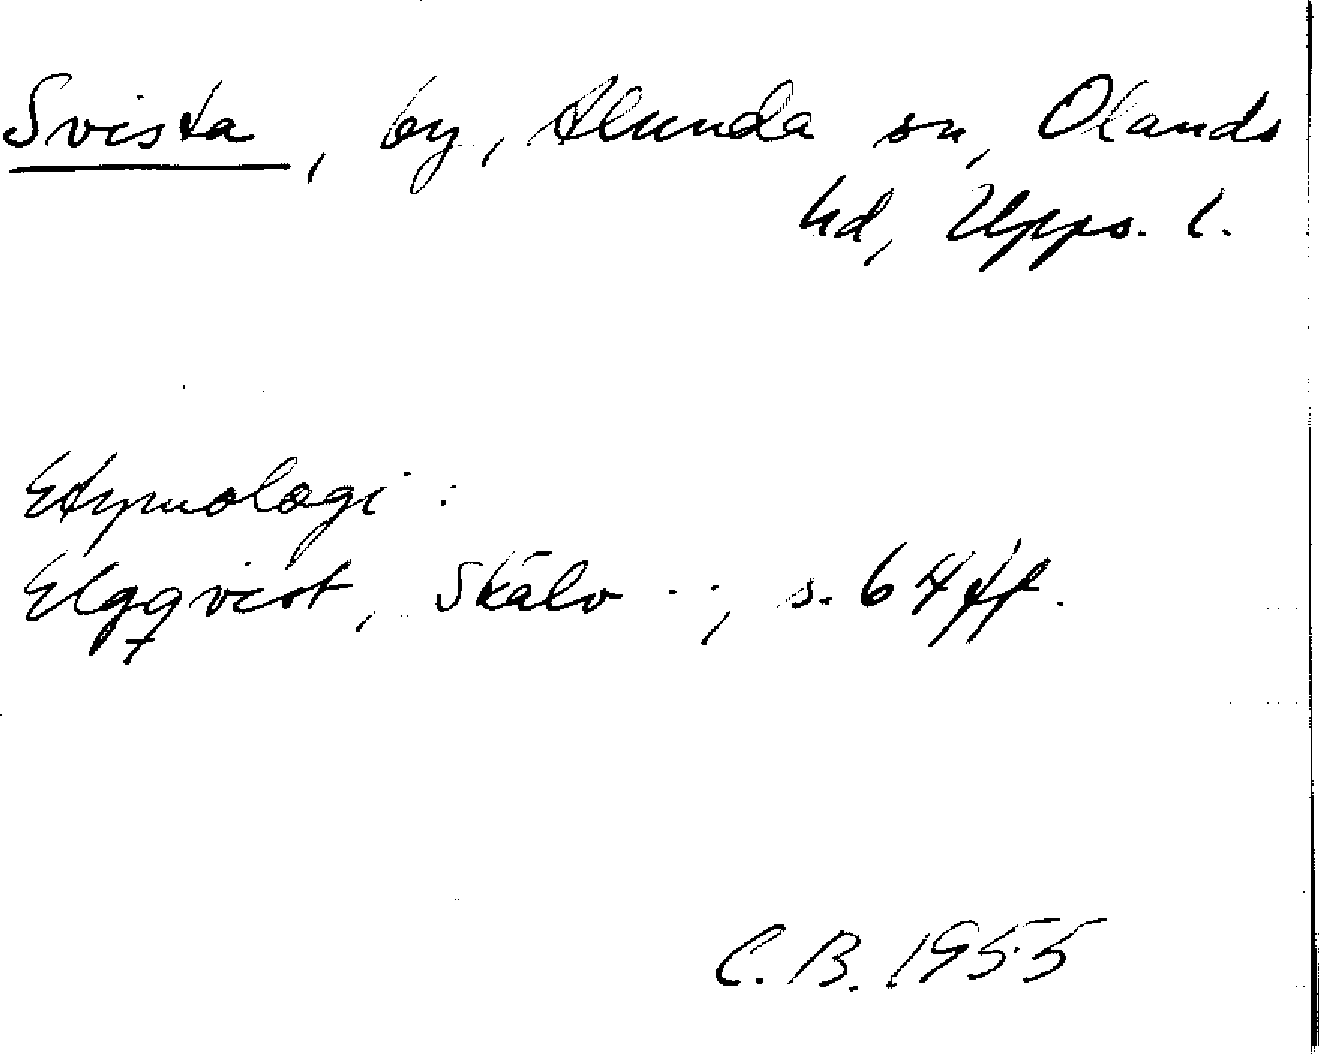 Svista, by, Alunda sn, Olands
hd, Upps. l.
Etymologi:
Elgqvist, Skälv .., s. 64 ff.
C.B. 1955